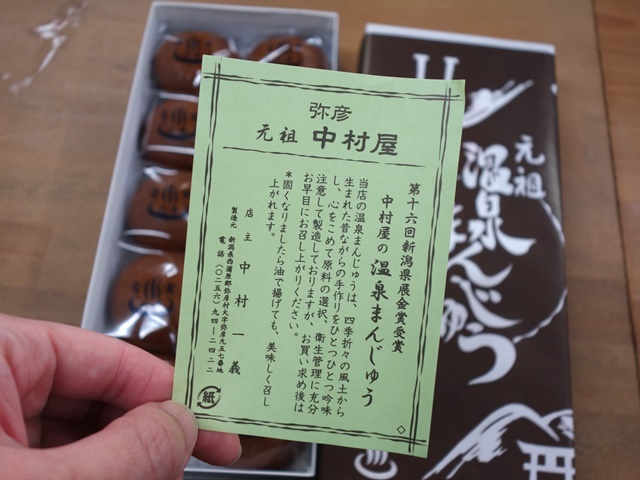 弥彦
元祖 中村屋
第十六回新潟県展金賞受賞
中村屋の温泉まんじゅう
当店の温泉まんじゅうは、四季折々の風土から
生まれた昔ながらの手作りをひとつひとつ吟味
し、心をこめて原料の選択、衛生管理に充分
注意して製造しておりますが、お買い求め後は
お早目にお召し上がりください。
＊固くなりましたら油で揚げても、美味しく召し
上がれます。
店主 中村一義
製造元 新潟県西蒲原郡弥彦村大字弥彦九五七番地
電話 (〇二五六)九四―二四二二
紙
元祖
温泉まんじゅう